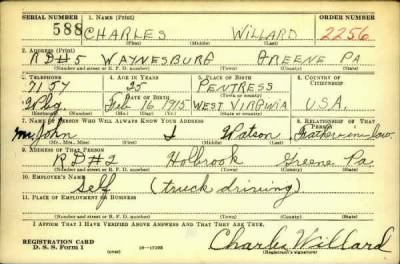 SERIAL NUMBER 1. NAME (Print) ORDER NUMBER
588 CHARLES WILLARD 2256
(First) (Middle) (Last)
2. ADDRESS (Print)
RD#5 WAYNESBURG GREENE PA
(Number and street or R. F. D. number) (Town) (County) (State)
3. TELEPHONE 4. AGE IN YEARS 5. PLACE OF BIRTH 6. COUNTRY OF CITIZENSHIP
7157 25 PENTRESS
DATE OF BIRTH (Town or county)
Wbg Feb 16 1915 WEST VIRGINIA U.S.A.
(Exchange) (Mo.) (Day) (Yr.) (State or country)
7. NAME OF PERSON WHO WILL ALWAYS KNOW YOUR ADDRESS 8. RELATIONSHIP OF THAT PERSON
Mr John I Watson Father in law
(Mr., Mrs., Miss) (First) (Middle) (Last)
9. ADDRESS OF THAT PERSON
RD#2 Holbrook Greene Pa
(Number and street or R. F. D. number) (Town) (County) (State)
10. EMPLOYER'S NAME
Self (truck driving)
11. PLACE OF EMPLOYMENT OR BUSINESS
(Number and street or R. F. D. number) (Town) (County) (State)
I AFFIRM THAT I HAVE VERIFIED ABOVE ANSWERS AND THAT THEY ARE TRUE.
REGISTRATION CARD
D. S. S. Form 1 Charles Willard
(Registrant's signature)